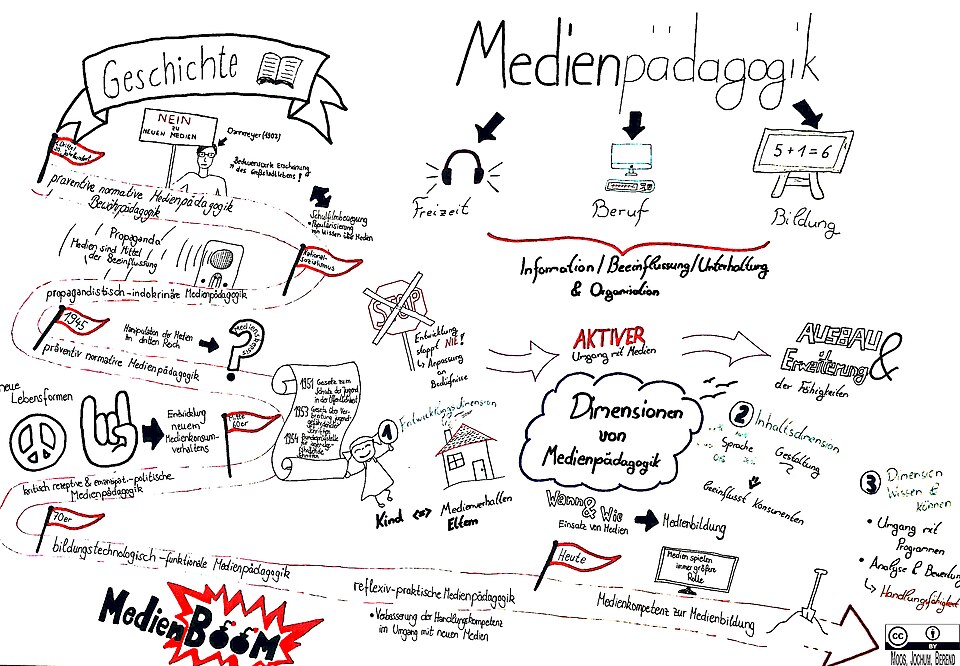 Geschichte
Medienpädagogik
NEIN
ZU
NEUEN MEDIEN
5+1=6
Freizeit
Beruf
Bildung
Information/Beeinflussung/Unterhaltung
& Organisation
präventive normative Medienpädagogik
Bewahrpädagogik
des Großstadtlebens!
Schulfilmbewegung
Popularisierung
von Wissen über Medien
Propaganda
Medien sind Mittel
der Beeinflussung
National-
Sozialismus
propagandistisch-indokrinäre Medienpädagogik
1945
Manipulation der Medien
im dritten Reich
präventiv normative Medienpädagogik
STOP
Entwicklung
stoppt NIE!
↳ Anpassung
an
Bedürfnisse
AKTIVER
Umgang mit Medien
AUSBAU
&
Erweiterung
der Fähigkeiten
neue
Lebensformen
Entwicklung
neuem
Medienkonsum-
verhaltens
Mitte
60er
1951 Gesetz zum
Schutz der Jugend
in der Öffentlichkeit
1953
1954
kritisch rezeptive & emanzipat.-politische
Medienpädagogik
1 Entwicklungsdimension
Kind <=> Medienverhalten
Eltern
Dimensionen
von
Medienpädagogik
2 Inhaltsdimension
Sprache
Gestaltung
beeinflusst Konsumenten
3 Dimension
Wissen &
können
• Umgang mit
Programmen
• Analyse & Bewertung
↳ Handlungsfähigkeit
Wann & Wie
Einsatz von Medien
Medienbildung
70er
bildungstechnologisch-funktionale Medienpädagogik
Heute
Medien spielen
immer größere
Rolle
Medienkompetenz zur Medienbildung
reflexiv-praktische Medienpädagogik
• Verbesserung der Handlungskompetenz
im Umgang mit neuen Medien
MedienBooM
cc
BY
MOOS, JOCHUM, BEREND